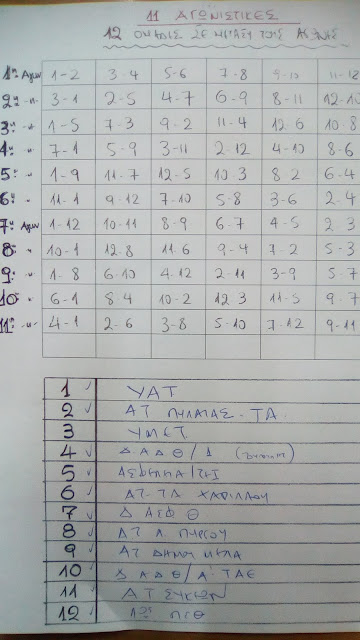 11 ΑΓΩΝΙΣΤΙΚΕΣ
12 ΟΜΑΔΕΣ ΣΕ ΜΕΤΑΞΥ ΤΟΥΣ ΑΓΩΝΕΣ
1η Αγων 1-2 3-4 5-6 7-8 9-10 11-12
2η -"- 3-1 2-5 4-7 6-9 8-11 12-10
3η -"- 1-5 7-3 9-2 11-4 12-6 10-8
4η -"- 7-1 5-9 3-11 2-12 4-10 8-6
5η " 1-9 11-7 12-5 10-3 8-2 6-4
6η " 11-1 9-12 7-10 5-8 3-6 2-4
7η Αγων 1-12 10-11 8-9 6-7 4-5 2-3
8η " 10-1 12-8 11-6 9-4 7-2 5-3
9η " 1-8 6-10 4-12 2-11 3-9 5-7
10η " 6-1 8-4 10-2 12-3 11-5 9-7
11η -"- 4-1 2-6 3-8 5-10 7-12 9-11
1 ΥΑΤ
2 ΑΤ ΠΥΛΑΙΑΣ - ΤΑ
3 ΥΜΕΤ
4 Δ.ΑΔΘ/Δ
5
6 ΑΤ-ΤΔ ΧΑΡΙΛΑΟΥ
7 Δ ΑΕΘ Θ
8 ΑΤ Λ. ΠΥΡΓΟΥ
9 ΑΤ ΔΗΜΟΥ ΜΕΛΑ
10 Δ ΑΔΘ/Α' ΤΑΕ
11 ΑΤ ΣΥΚΕΩΝ
12 1ος ΠΣΘ